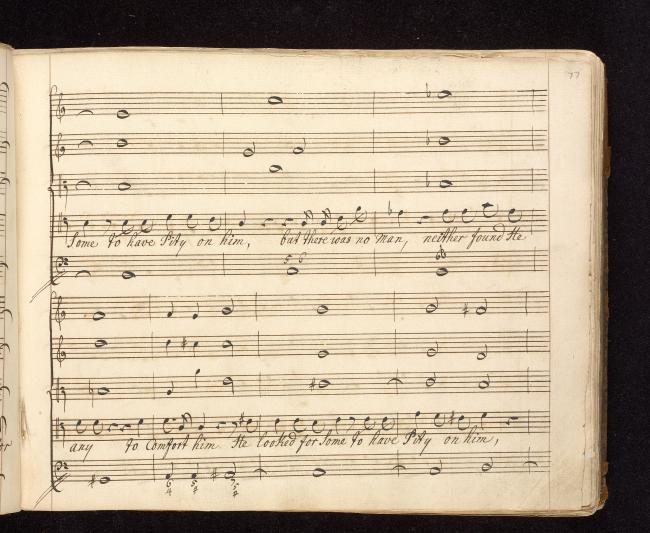 77
Some to have Pity on him, but there was no man, neither found He
5 6
6b
any to Comfort him He looked for Some to have Pity on him,